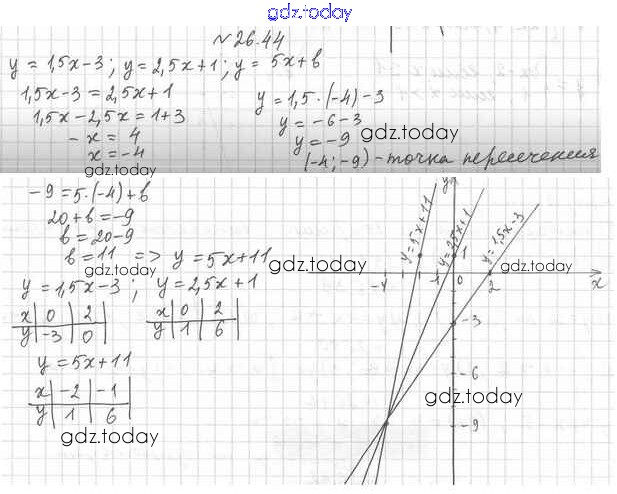 gdz.today
№ 26.44
y = 1,5x-3; y = 2,5x+1; y = 5x+b
1,5x-3 = 2,5x+1
1,5x-2,5x = 1+3
-x = 4
x = -4
gdz.today
y = 1,5·(-4)-3
y = -6-3
y = -9
gdz.today
(-4;-9) - точка пересечения
-9 = 5·(-4)+b
20+b = -9
b = 20-9
b = 11 => y = 5x+11
gdz.today
gdz.today
y = 1,5x-3; y = 2,5x+1
x | 0 | 2
y | -3 | 0
x | 0 | 2
y | 1 | 6
y = 5x+11
x | -2 | -1
y | 1 | 6
gdz.today
y
y = 5x+11
y = 2,5x+1
y = 1,5x-3
1
-4
-1
0
2
x
gdz.today
-3
-6
gdz.today
-9